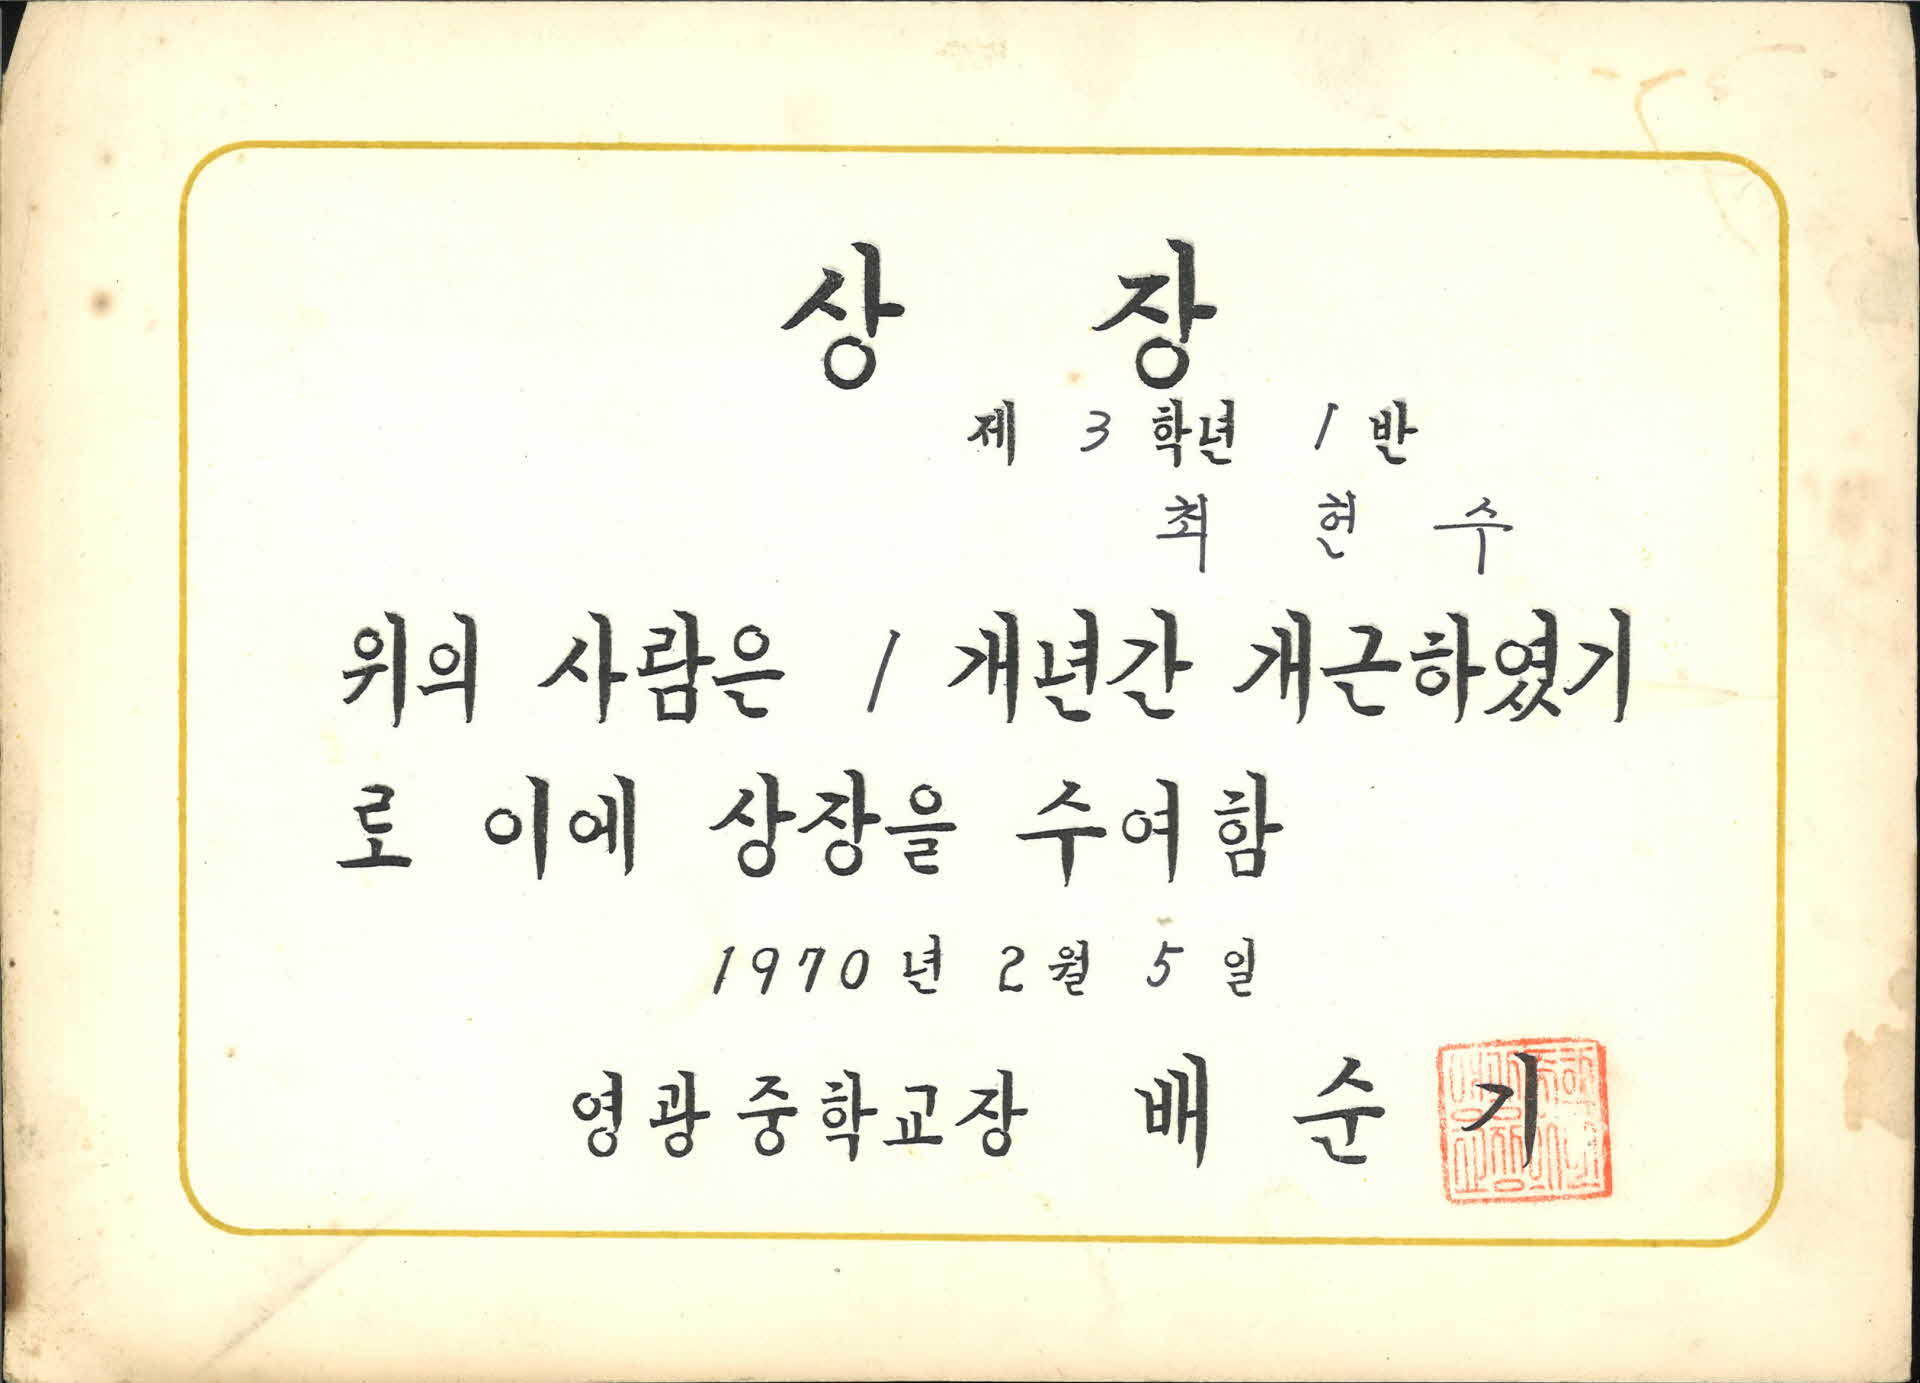 상 장
제 3 학년 1 반
최 현 수
위의 사람은 1 개년간 개근하였기
로 이에 상장을 수여함
1970년 2월 5일
영광중학교장 배 순 기